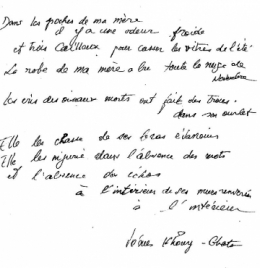 Dans les poches de ma mère
il y a une odeur froide
et trois cailloux pour casser les vitres de l'été
La robe de ma mère a bu toute la neige de
novembre
Les cris des oiseaux morts ont fait des trous
dans son ourlet
Elle les chasse de ses bras
Elle les injurie dans l'absence des mots
et l'absence des échos
à l'intérieur de ses murs
à l'intérieur
Vénus Khoury-Ghata